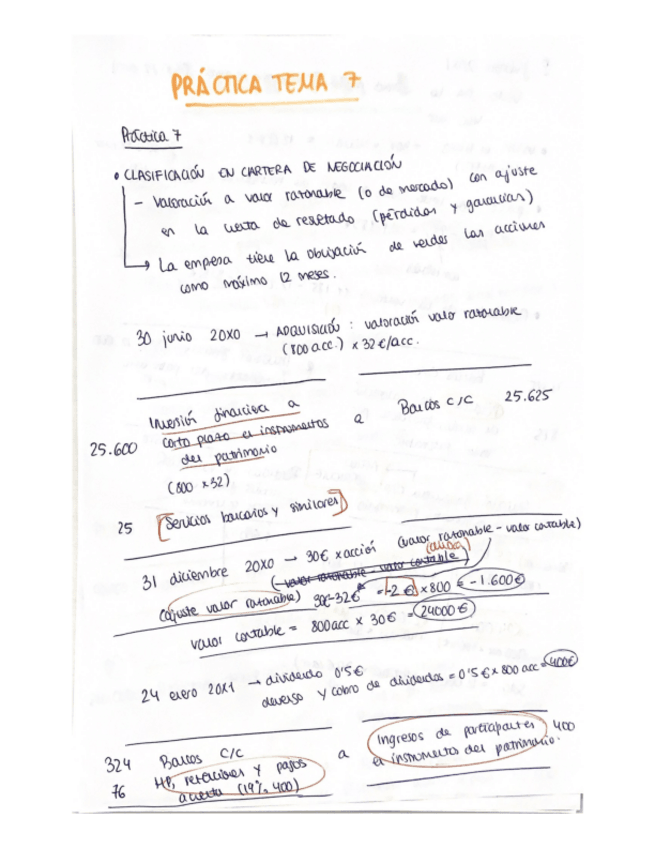 PRÁCTICA TEMA 7
Práctica 7
• CLASIFICACIÓN EN CARTERA DE NEGOCIACIÓN
- Valoración a valor razonable (o de mercado) con ajuste
en la cuenta de resultado (pérdidas y ganancias)
→ La empresa tiene la obligación de vender las acciones
como máximo 12 meses.
30 junio 20X0 → ADQUISICIÓN: valoración valor razonable
(800 acc.) x 32€/acc.
25.600 Inversión financiera a
corto plazo en instrumentos
del patrimonio
(800 x 32)
a Bancos c/c 25.625
25 [Servicios bancarios y similares]
31 diciembre 20X0 → 30€ x acción (valor razonable - valor contable)
(valor razonable - valor contable)
(ajuste valor razonable) 30€-32€ = -2€ x 800 € = -1.600€
valor contable = 800 acc x 30€ = 24000€
24 enero 20X1 → dividendo 0'5€
devengo y cobro de dividendos = 0'5€ x 800 acc = 400€
324 Bancos c/c
76 HP, retenciones y pagos
a cuenta (19% 400)
a Ingresos de participaciones 400
en instrumentos del patrimonio.